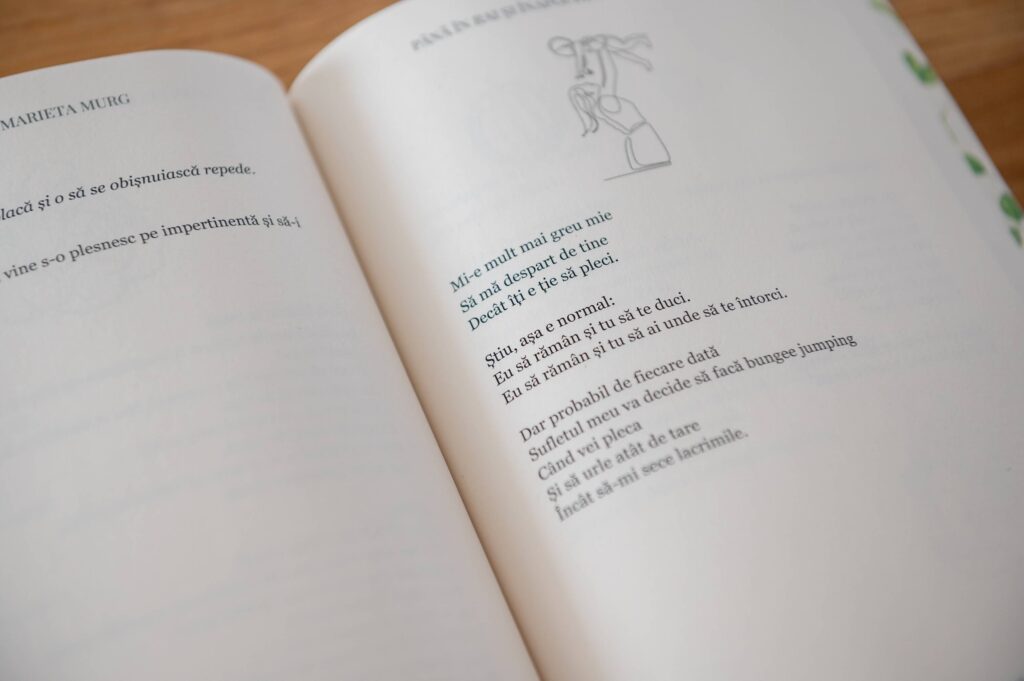 MARIETA MURG
placă și o să se obișnuiască repede.
vine s-o plesnesc pe impertinentă și să-i
PÂNĂ ÎN RAI ȘI ÎNAPOI
Mi-e mult mai greu mie
Să mă despart de tine
Decât îți e ție să pleci.
Știu, așa e normal:
Eu să rămân și tu să te duci.
Eu să rămân și tu să ai unde să te întorci.
Dar probabil de fiecare dată
Sufletul meu va decide să facă bungee jumping
Când vei pleca
Și să urle atât de tare
Încât să-mi sece lacrimile.